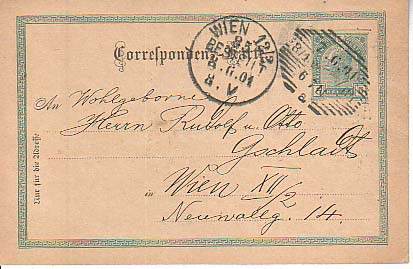 Correspondenz-Karte
WIEN 12/2
BESTELLT
8.6.01
8.V
An Wohlgeborne
Herrn Rudolf u. Otto
Gschladt
in Wien XII/2
Neuwallg. 14.
Nur für die Adresse